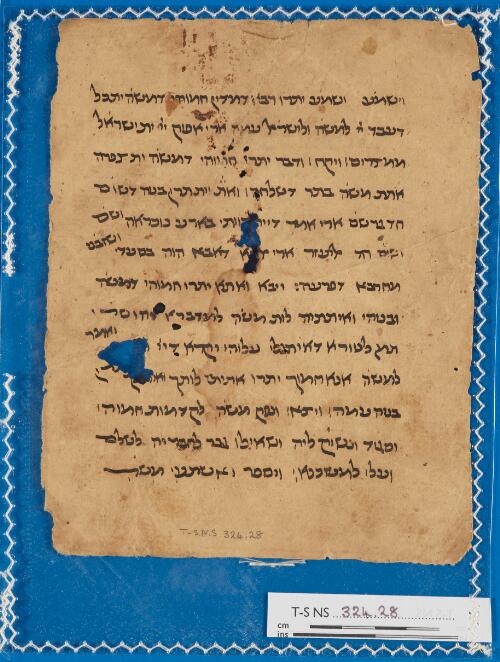 וישמע ושמע יתרו רבא דמדין חמוהי דמשה ית כל
דעבד יי למשה ולישראל עמיה ארי אפיק יי ית ישראל
ממצרים ויקח ודבר יתרו חמוהי דמשה ית צפרה
אתת משה בתר דשלחה ואת וית תרין בנהא דשום
חד גרשם ארי אמר דייר הויתי בארע נוכראה ושם
ושום חד אליעזר ארי דאבא הוה בסעדי ושזבני
מחרבא דפרעה: ויבא ואתא יתרו חמוהי דמשה
ובנוהי ואיתתיה לות משה למדברא דהוא שרי
תמן לטורא דאיתגלי עלוהי יקרא דיי ואמר
למשה אנא חמוך יתרו אתיתי לותך
בנהא עמה ויצא ונפק משה לקדמות חמוהי
וסגיד ונשיק ליה ושאילו גבר לחבריה לשלם
ועלו למשכנא ויספר ואשתעי משה
T-S N.S 324.28
T-S NS 324.28
cm
ins